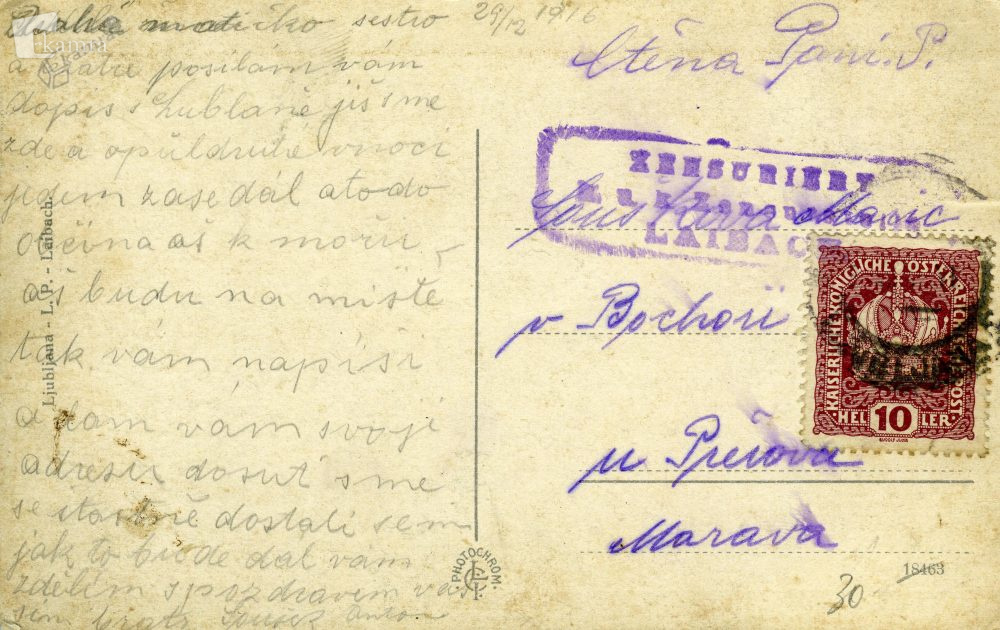 Drahá matičko sestro
29/12 1916
a bratře posílám vám
dopis s Lublaně jiš sme
zde a opůldruhé vnoci
jedem zase dál a to do
občina aš k mořu
aš budu na mistě
tak vám napíši
a dám vám svoji
adresu dosuť sme
se štastně dostali sem
jak to bude dál vám
zdělím s pozdravem váš
sin bratr Souček Anton
Ljubljana - L. P. - Laibach.
PHOTOCHROM.
Ctěna Pani. P.
ZENSURIERT
LAIBACH
Marie
v Bochoři
u Přerova
Marava
KAISERLICHE KÖNIGLICHE ÖSTERREICHISCHE POST
HELLER
10
18463
30